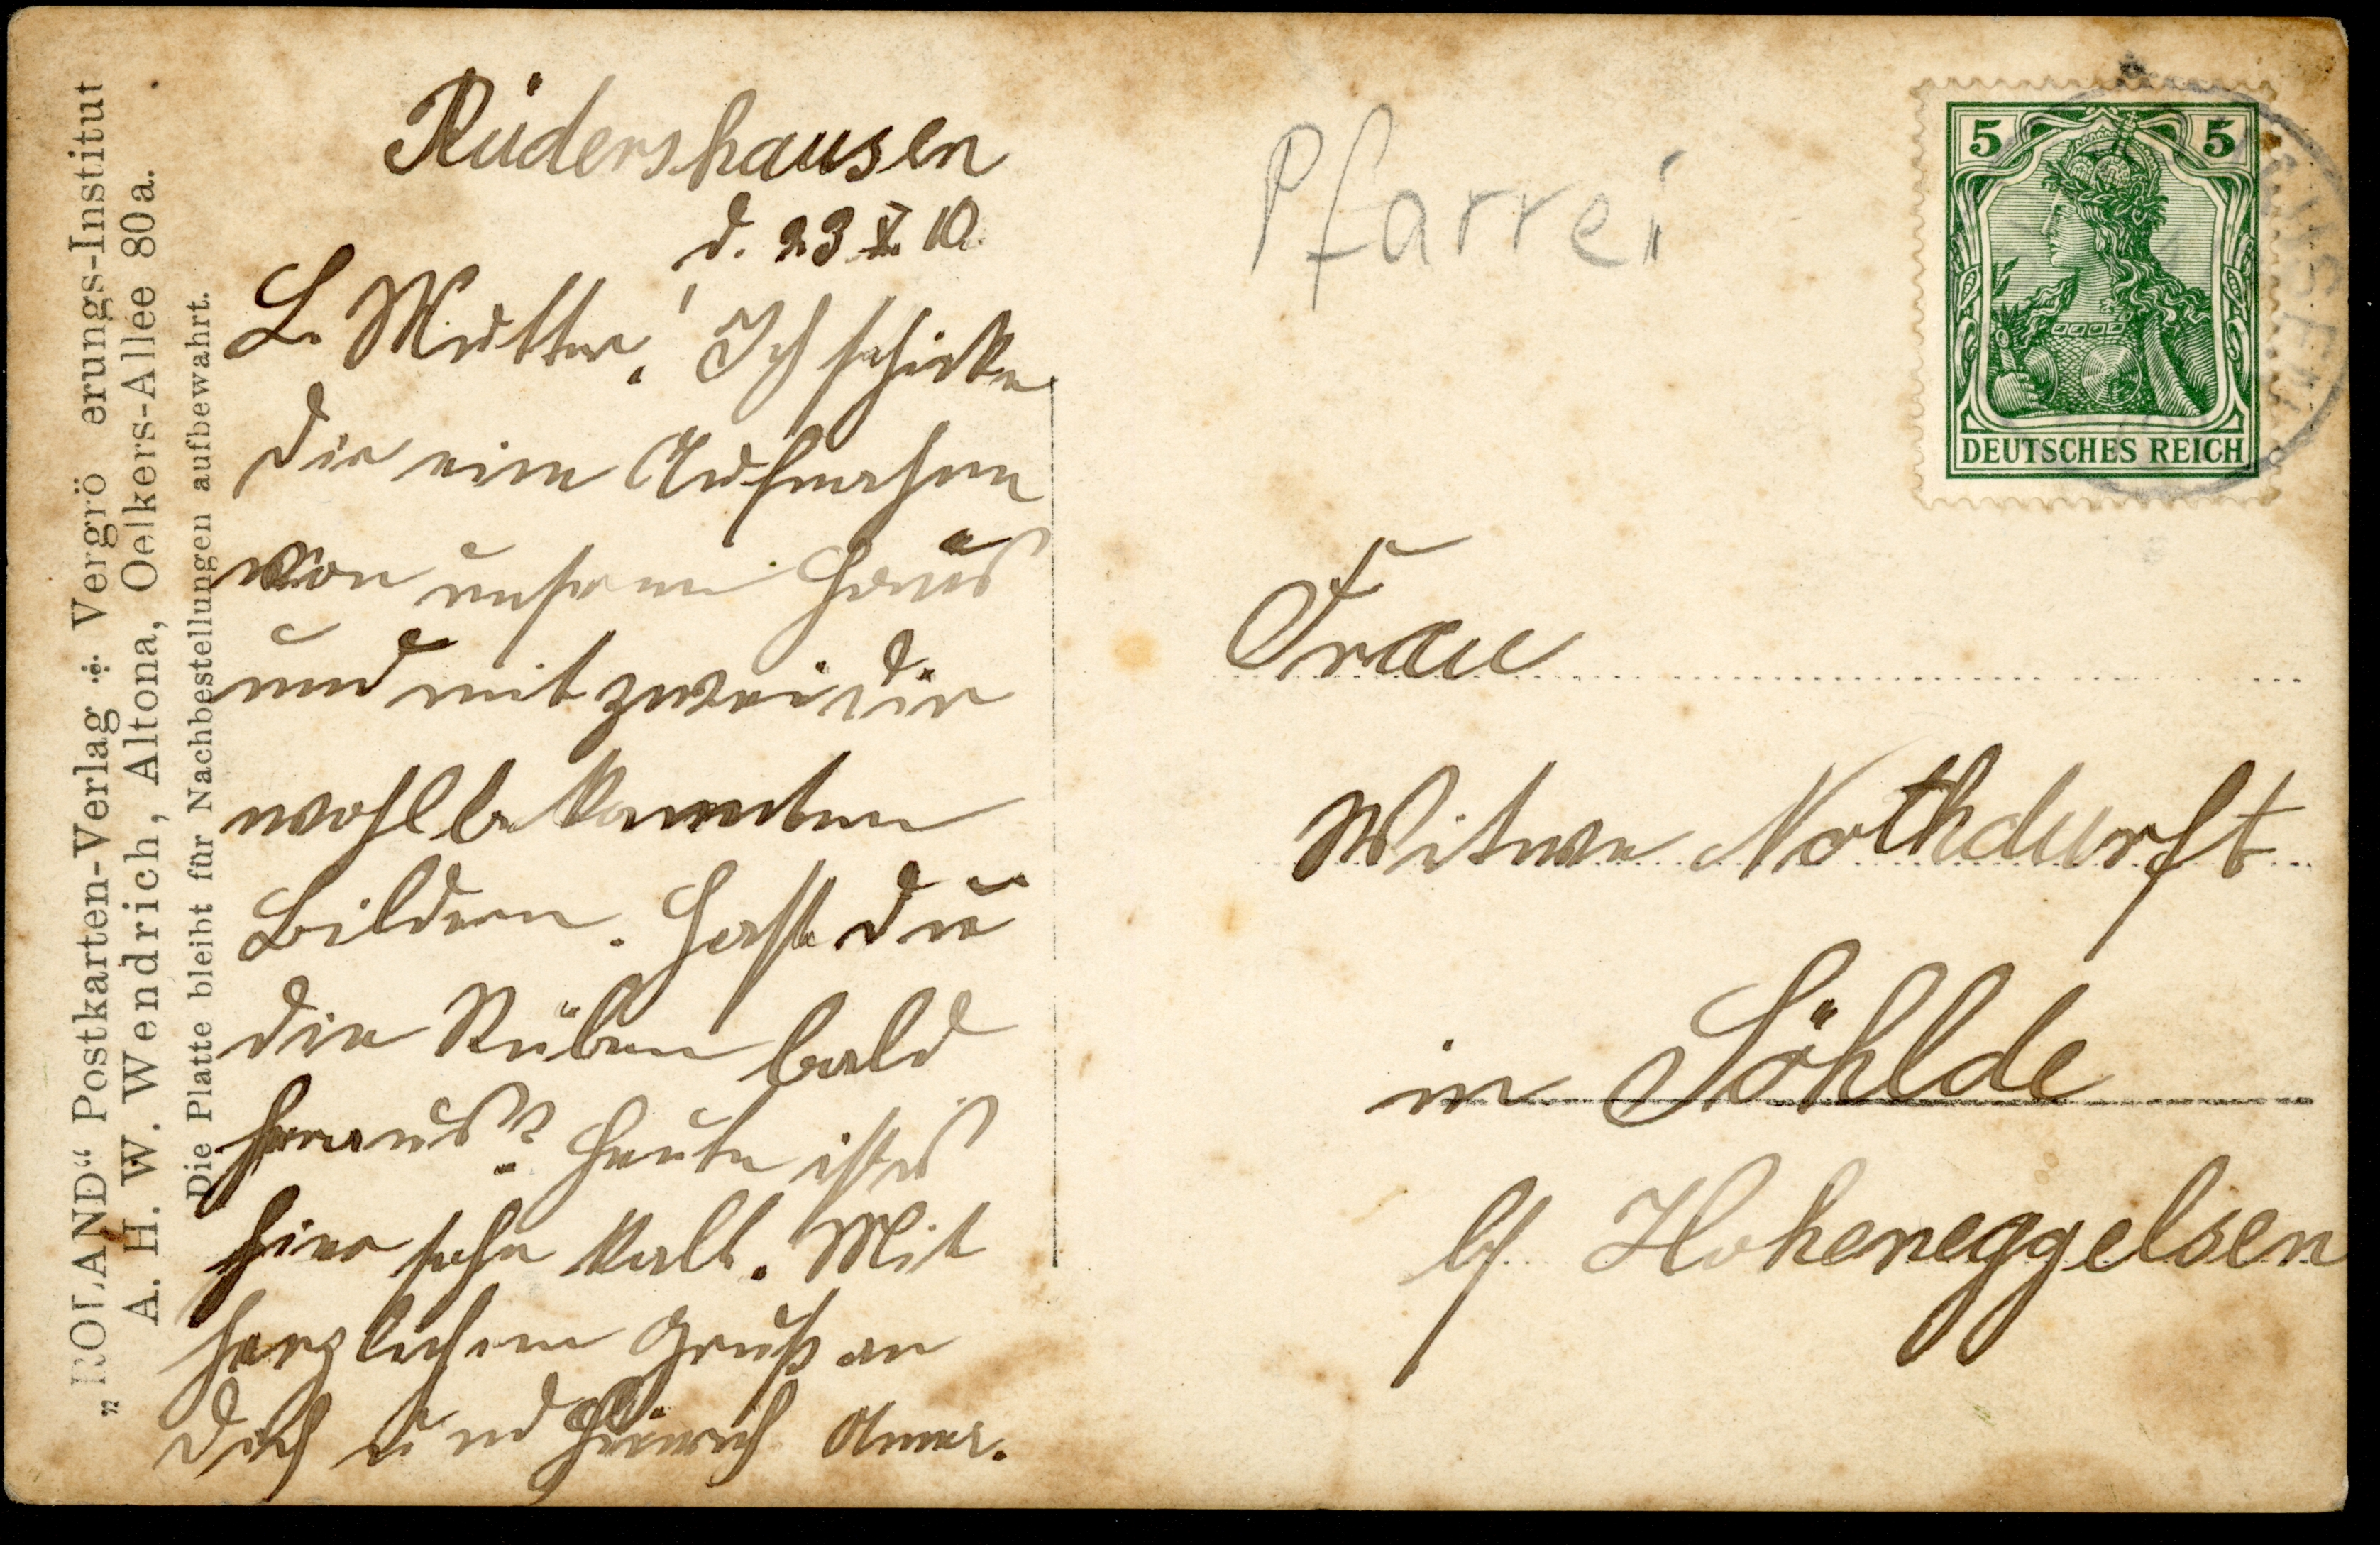 „ROLAND“ Postkarten-Verlag ⁜ Vergrö erungs-Institut
A. H. W. Wendrich, Altona, Oelkers-Allee 80a.
Die Platte bleibt für Nachbestellungen aufbewahrt.
Rüdershausen
d. 23 X. 10.
L. Mutter! Ich schicke
dir eine Aufnahme
von unserm Haus
und mit zwei dir
wohlbekannten
Bildern. Hast du
die Rüben bald
heraus? Heute ist es
hier sehr kalt. Mit
herzlichem Gruß an
dich und Heinrich Anna.
Pfarrei
5 5
DEUTSCHES REICH
Frau
Witwe Nothdurft
in Söhlde
b/ Hoheneggelsen